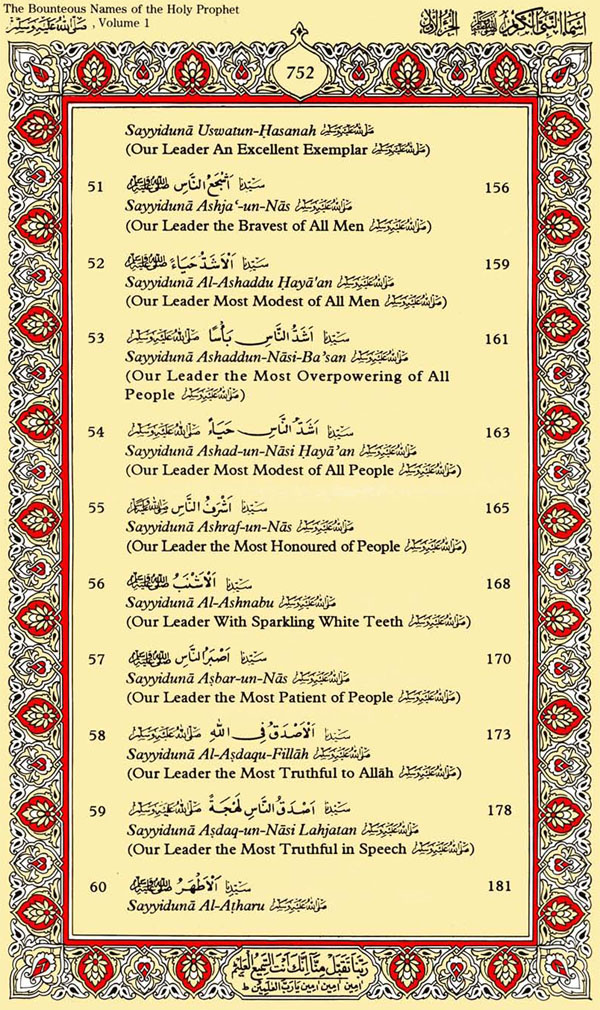 The Bounteous Names of the Holy Prophet
ﷺ, Volume 1
اسماء النبی الکریم ﷺ الجزء الاول
752
Sayyidunā Uswatun-Ḥasanah ﷺ
(Our Leader An Excellent Exemplar ﷺ)
51 سَيِّدِنَا اَشْجَعُ النَّاسِ ﷺ 156
Sayyidunā Ashja‘-un-Nās ﷺ
(Our Leader the Bravest of All Men ﷺ)
52 سَيِّدِنَا اَلْاَشَدُّ حَيَاءً ﷺ 159
Sayyidunā Al-Ashaddu Ḥayā'an ﷺ
(Our Leader Most Modest of All Men ﷺ)
53 سَيِّدِنَا اَشَدُّ النَّاسِ بَأْسًا ﷺ 161
Sayyidunā Ashaddun-Nāsi-Ba’san ﷺ
(Our Leader the Most Overpowering of All
People ﷺ)
54 سَيِّدِنَا اَشَدُّ النَّاسِ حَيَاءً ﷺ 163
Sayyidunā Ashad-un-Nāsi Ḥayā’an ﷺ
(Our Leader Most Modest of All People ﷺ)
55 سَيِّدِنَا اَشْرَفُ النَّاسِ ﷺ 165
Sayyidunā Ashraf-un-Nās ﷺ
(Our Leader the Most Honoured of People ﷺ)
56 سَيِّدِنَا اَلْاَشْنَبُ ﷺ 168
Sayyidunā Al-Ashnabu ﷺ
(Our Leader With Sparkling White Teeth ﷺ)
57 سَيِّدِنَا اَصْبَرُ النَّاسِ ﷺ 170
Sayyidunā Aṣbar-un-Nās ﷺ
(Our Leader the Most Patient of People ﷺ)
58 سَيِّدِنَا اَلْاَصْدَقُ فِی اللهِ ﷺ 173
Sayyidunā Al-Aṣdaqu-Fillāh ﷺ
(Our Leader the Most Truthful to Allāh ﷺ)
59 سَيِّدِنَا اَصْدَقُ النَّاسِ لَهْجَةً ﷺ 178
Sayyidunā Aṣdaq-un-Nāsi Lahjatan ﷺ
(Our Leader the Most Truthful in Speech ﷺ)
60 سَيِّدِنَا اَلْاَطْهَرُ ﷺ 181
Sayyidunā Al-Aṭharu ﷺ
رَبَّنَا تَقَبَّلْ مِنَّا اِنَّكَ اَنْتَ السَّمِيعُ الْعَلِيمُ
امين امين امين يا رب العلمين ط